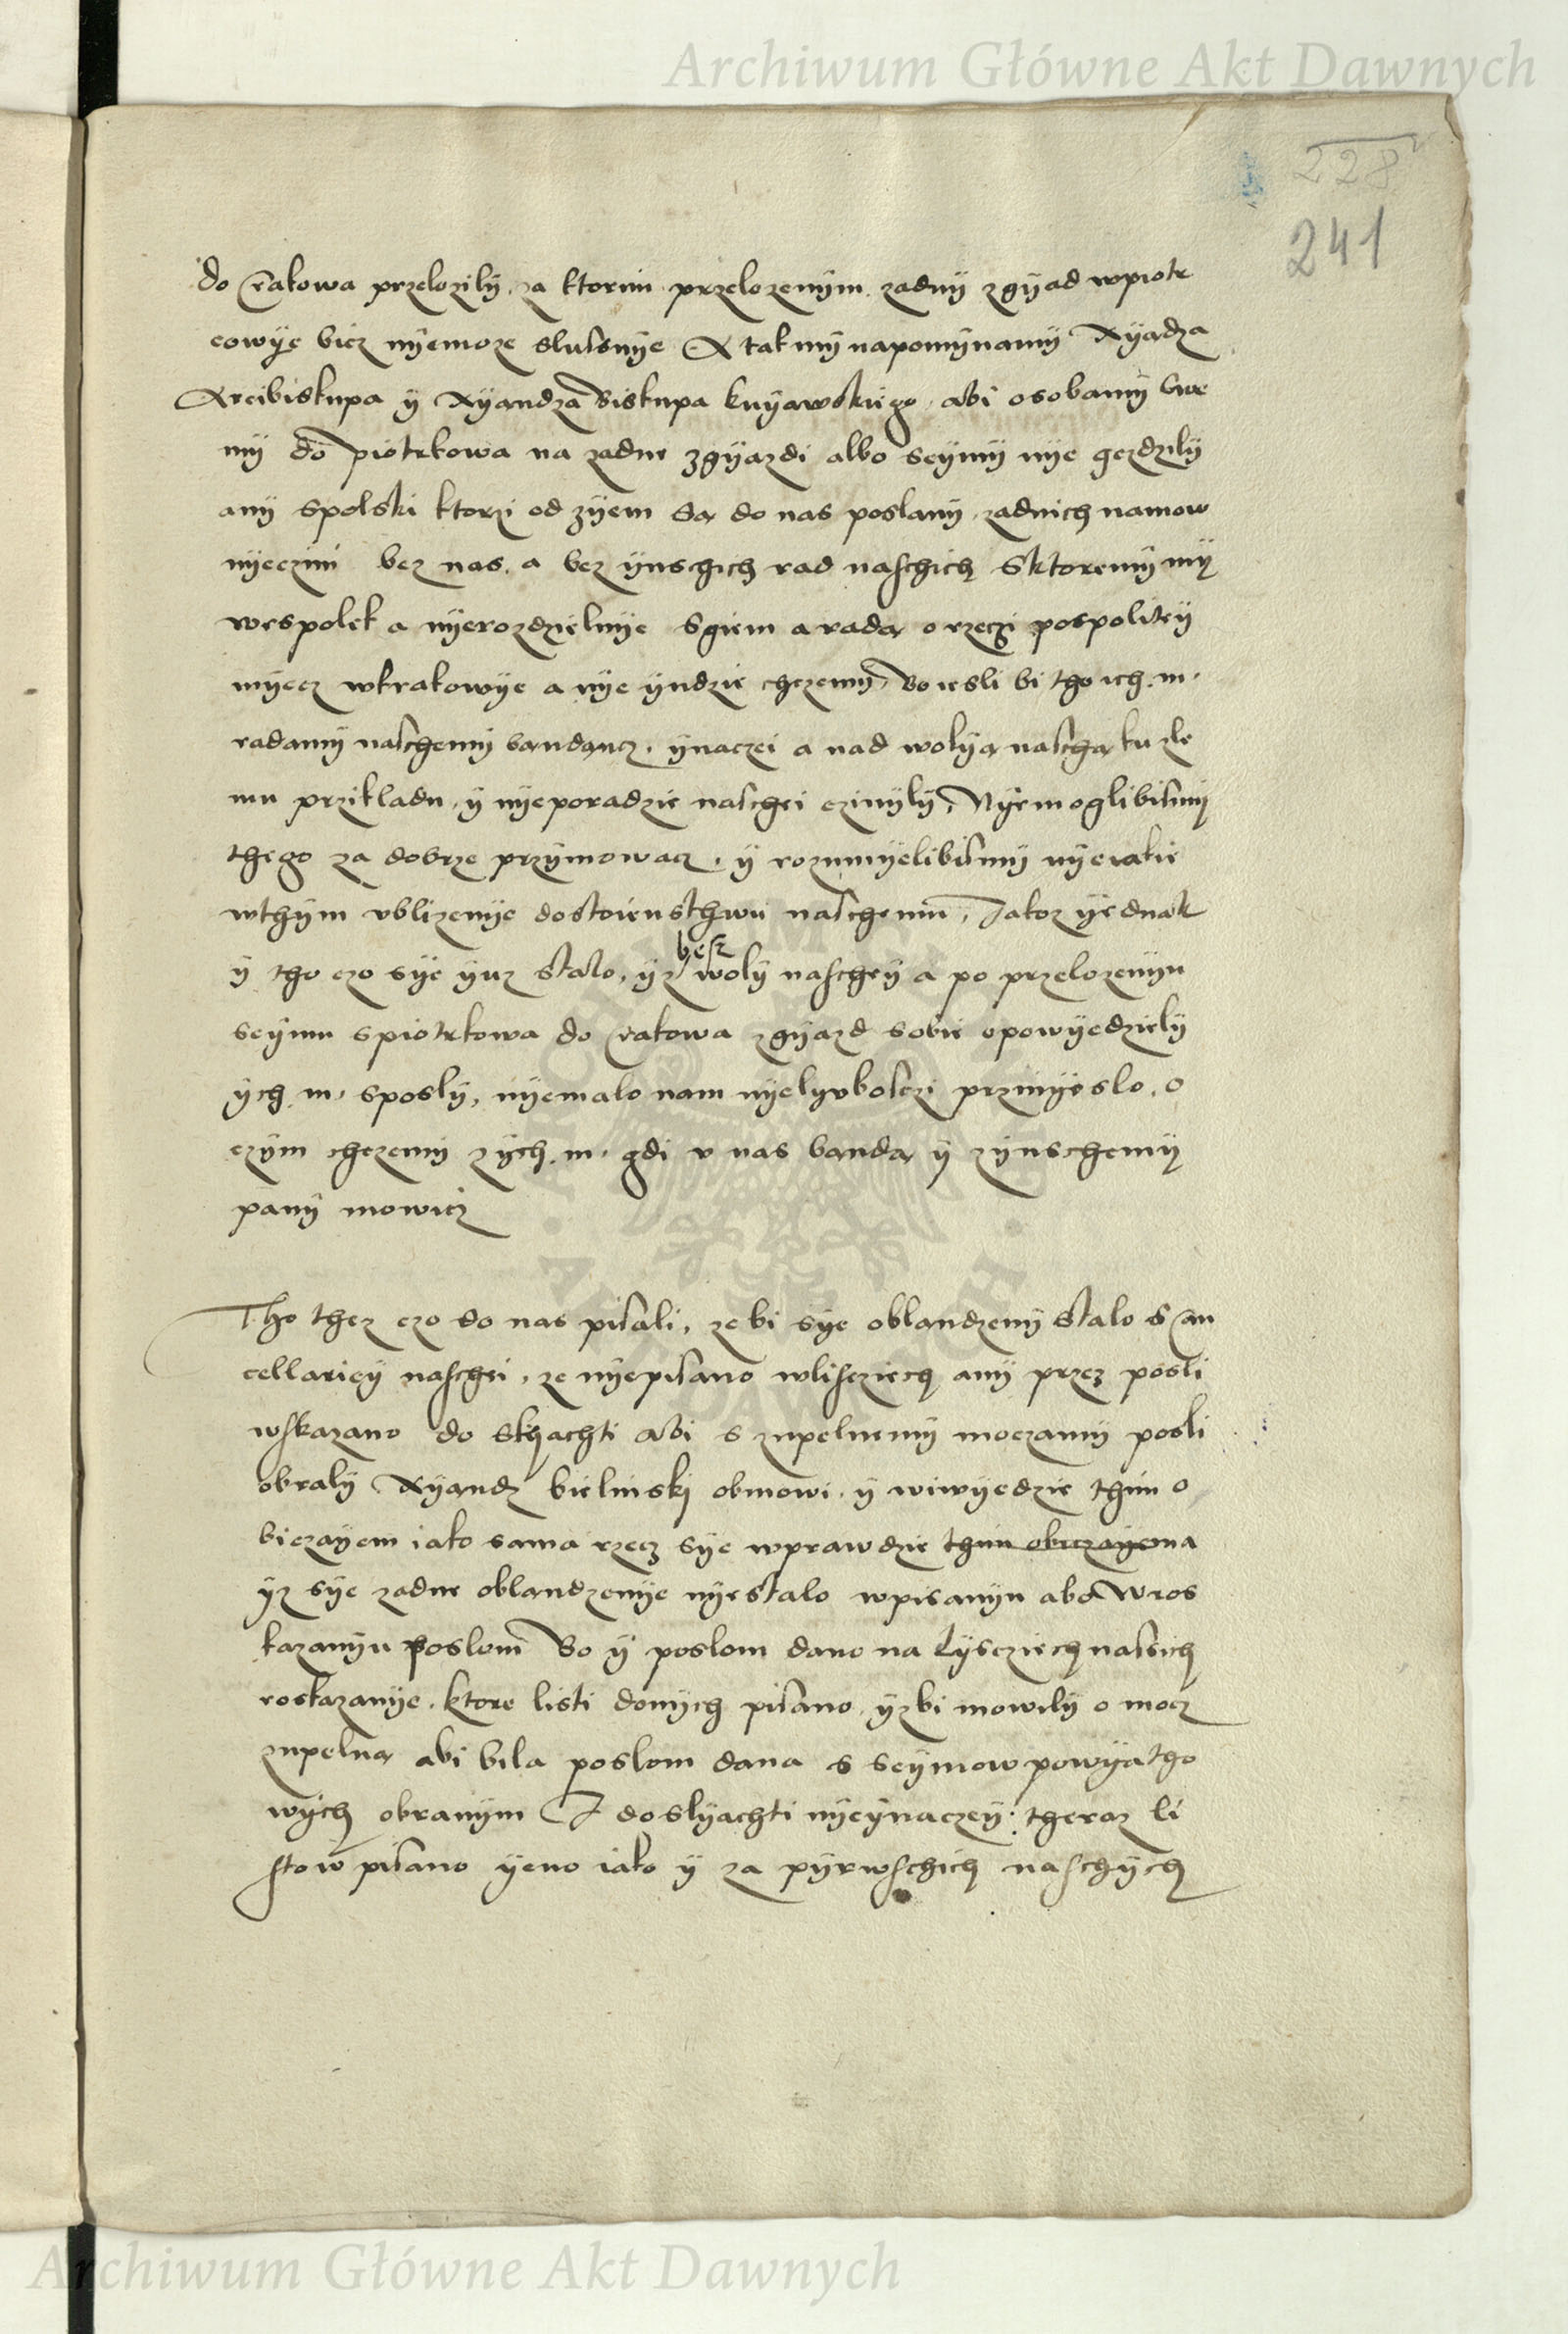 Archiwum Główne Akt Dawnych
228
241
do Crakowa przelozily, za ktorim przelozenym zadny zgyad wpiotr
cowye bicz nyemoze slusnye A tak my napomynamy Xyadza
Arcibiskupa y Xyandza Biskupa kuyawskiego, abi osobamy swe
my do piotrkowa na zadne zgyazdi albo seymy nye gezdzily
any spolski ktorzi od zyem sa do nas poslany, zadnich namow
nyeczini bez nas, a bez ynschich rad naschich Sktoremy my
wespolek a nyerozdzielnye sgiem a rada o rzeczi pospolitey
myecz wkrakowye a nye yndzie chczemy, Bo iesli bi tho ich. m.
radamy naschemy bandancz, ynaczei a nad wolya nascha ku zle
mu przikladu, y nyeporadzie naschei czinyly, Nyemoglibismy
thego za dobrze przymowacz, y rozumyelibismy nyeiakie
wthym ublizenye dostoienstwu naschemu, Jakoz yednak
y tho czo sye yuz stalo, yz besz woly naschey a po przelozenyu
seymu spiotrkowa do Crakowa zgyazd sobie opowyedziely
ych. m. sposly, nyemalo nam nyelyuboсzi przinyeslo, o
czym chczemy zych. m. gdi u nas banda y zynschemy
pany mowicz
Tho thez czo do nas pisali, ze bi sye oblandzeny stalo s Can
cellariey naschei, ze nyepisano wlisciech any przez posli
wskazano do slyachti abi s zupelnemy moczamy posli
obraly Xyandz bielinski obmowi, y wiwyedzie thim o
biczayem iako sama rzecz sye wprawdzie thim obiczayem ma
yz sye zadne oblandzenye nyestalo wpisanyu abo wros
kazanyu poslom Bo y poslom dano na lysciech nasich
roskazanye, ktore listi donych pisano, yzbi mowily o mocz
zupelna abi bila poslom dana s seymow powyatho
wych obranym I doslyachti nyeynaczey theraz li
stow pisano yeno iako y za pyrwschich naschych
Archiwum Główne Akt Dawnych